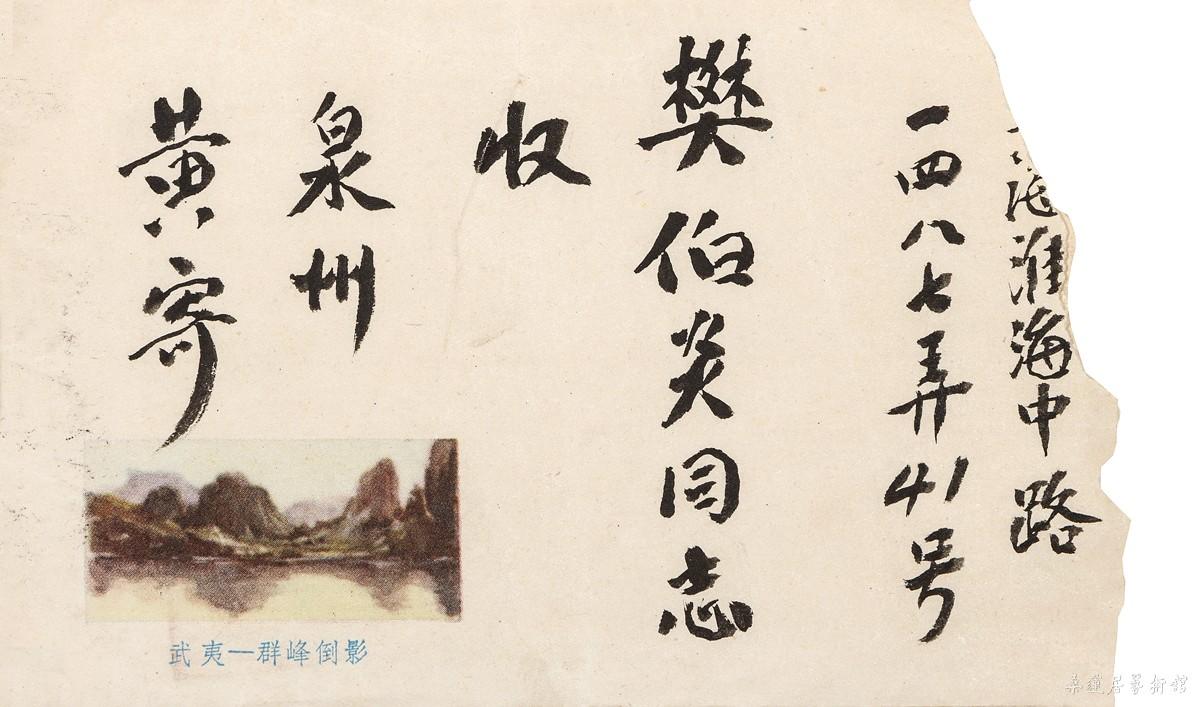 海淮海中路
一四八七弄41号
樊伯炎同志
收
泉州
黄寄
武夷—群峰倒影